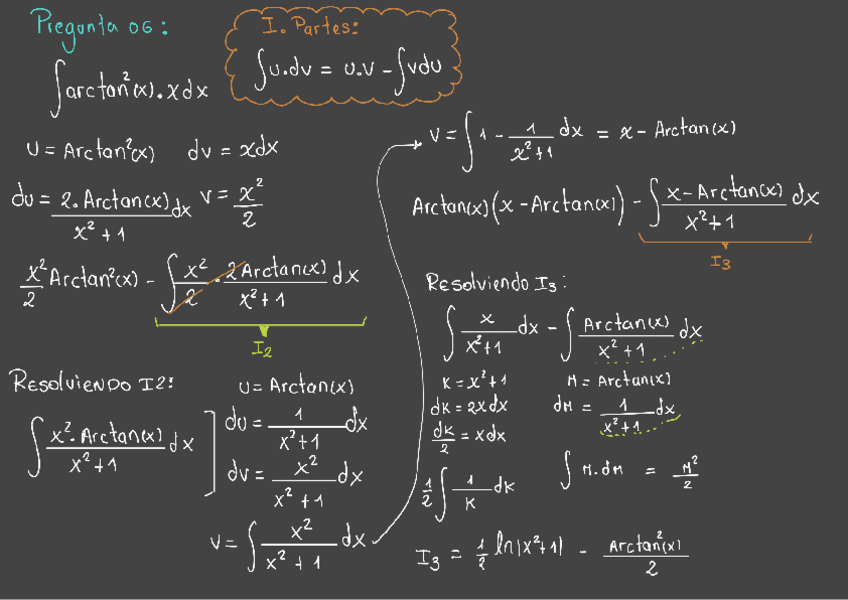 Pregunta 06:
∫arctan²(x).xdx
I. Partes:
∫u.dv = u.v - ∫vdu
U = Arctan²(x) dv = xdx
du = 2.Arctan(x)/(x²+1) dx v = x²/2
x²/2 Arctan²(x) - ∫ x²/2 . 2Arctan(x)/(x²+1) dx
I2
Resolviendo I2:
∫ x².Arctan(x)/(x²+1) dx
U = Arctan(x)
du = 1/(x²+1) dx
dv = x²/(x²+1) dx
v = ∫ x²/(x²+1) dx
v = ∫ 1 - 1/(x²+1) dx = x - Arctan(x)
Arctan(x)(x - Arctan(x)) - ∫ x-Arctan(x)/(x²+1) dx
I3
Resolviendo I3:
∫ x/(x²+1) dx - ∫ Arctan(x)/(x²+1) dx
K = x²+1 M = Arctan(x)
dK = 2xdx dM = 1/(x²+1) dx
dK/2 = xdx
1/2 ∫ 1/K dK ∫ M.dM = M²/2
I3 = 1/2 ln|x²+1| - Arctan²(x)/2